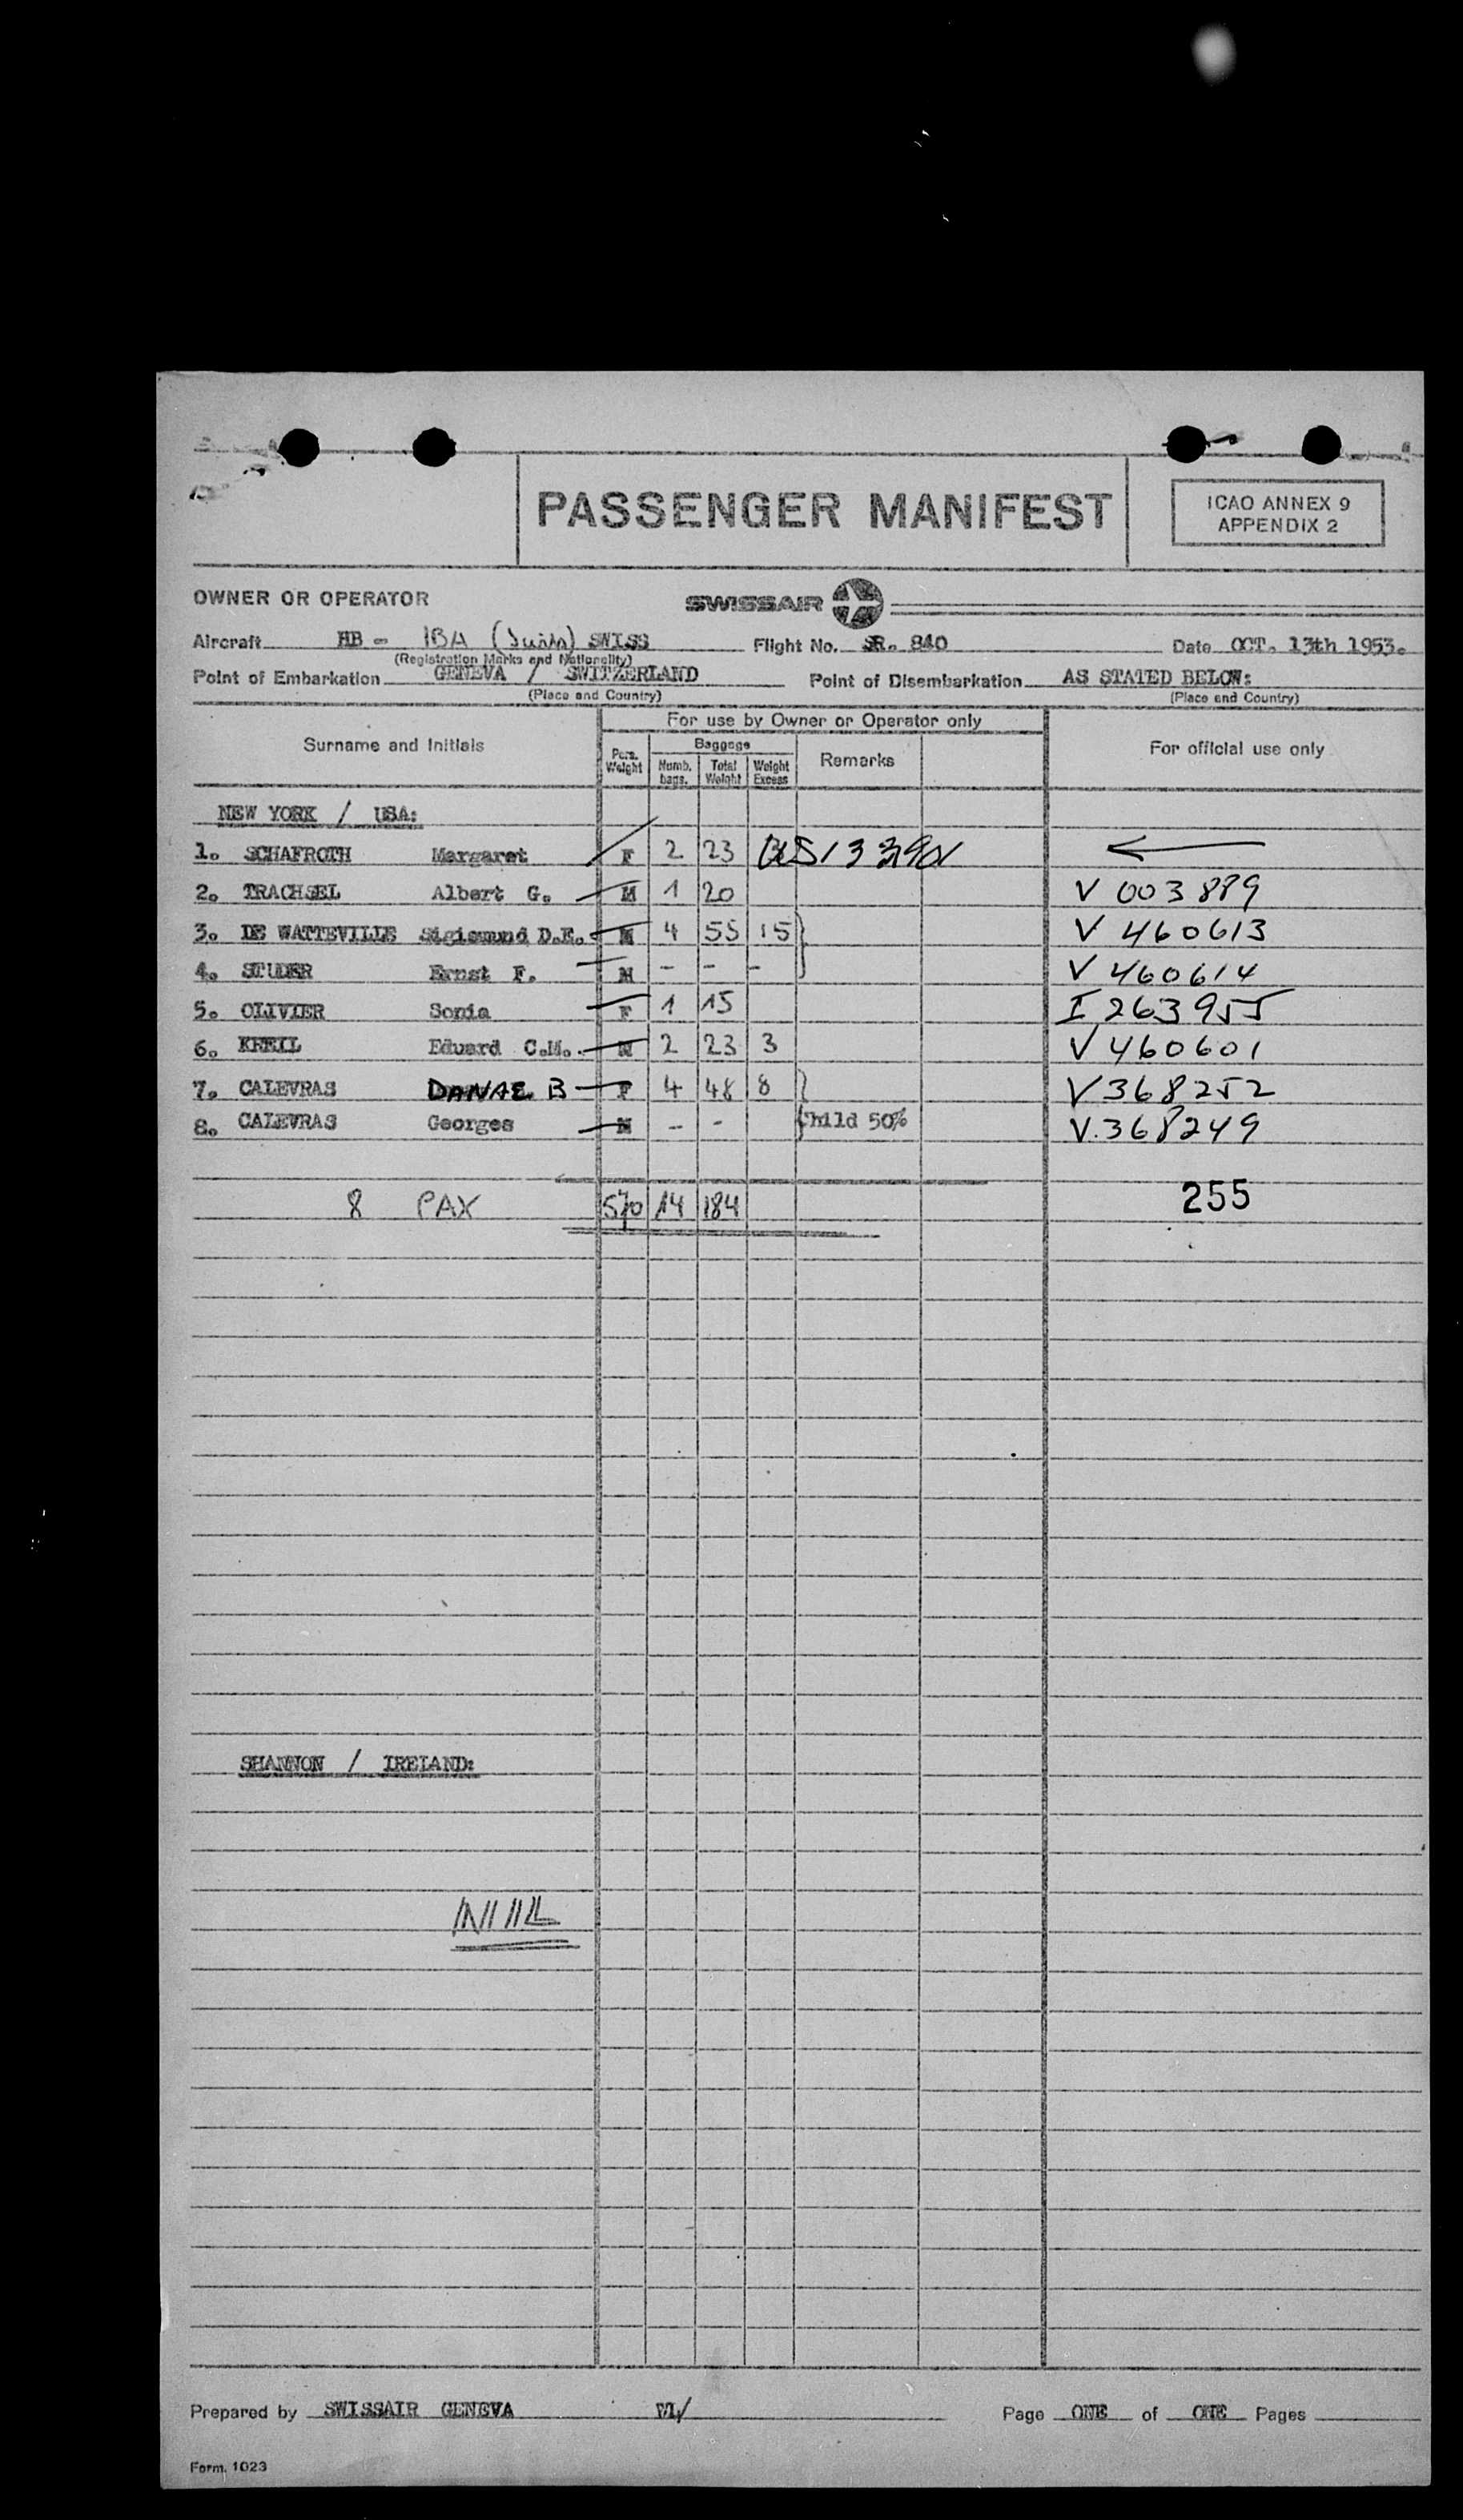 PASSENGER MANIFEST
ICAO ANNEX 9
APPENDIX 2
OWNER OR OPERATOR SWISSAIR
Aircraft HB - IBA SWISS Flight No. SR. 840 Date OCT. 13th 1953.
(Registration Marks and Nationality)
Point of Embarkation GENEVA / SWITZERLAND Point of Disembarkation AS STATED BELOW:
(Place and Country) (Place and Country)
For use by Owner or Operator only
Surname and Initials Pers. Weight Baggage Remarks For official use only
Numb. bags. Total Weight Weight Excess
NEW YORK / USA:
1. SCHAFROTH Margaret F 2 23
2. TRACHSEL Albert G. M 1 20 V 003889
3. DE WATTEVILLE Sigismund D.E. M 4 55 15 V 460613
4. STUDER Ernst F. M - - - V 460614
5. OLIVIER Sonia F 1 15 I 263955
6. KREIL Eduard C.M. M 2 23 3 V 460601
7. CALEVRAS DANAE B F 4 48 8 V 368252
8. CALEVRAS Georges M - - Child 50% V.368249
8 PAX 570 14 184 255
SHANNON / IRELAND:
NIL
Prepared by SWISSAIR GENEVA Page ONE of ONE Pages
Form. 1023